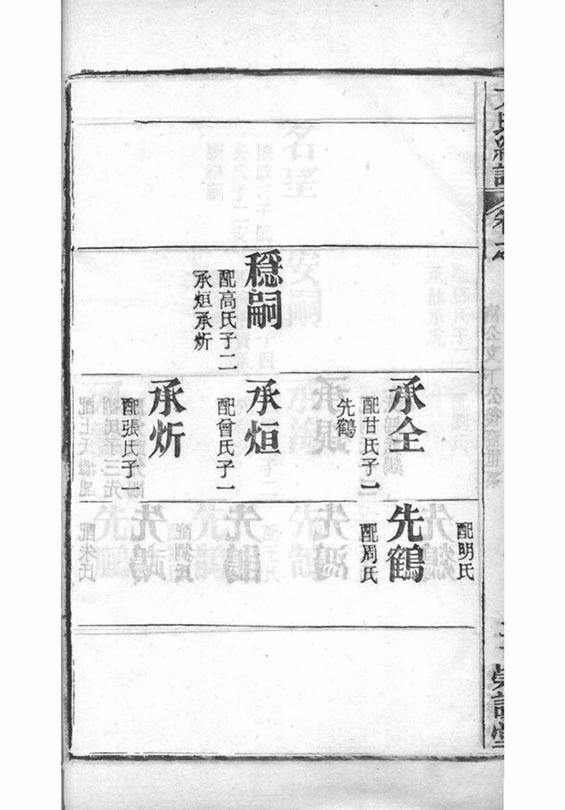 穩嗣
配高氏子二
承烜承炘
承全
配甘氏子一
先鶴
承烜
配曾氏子一
承炘
配張氏子一
配明氏
先鶴
配周氏